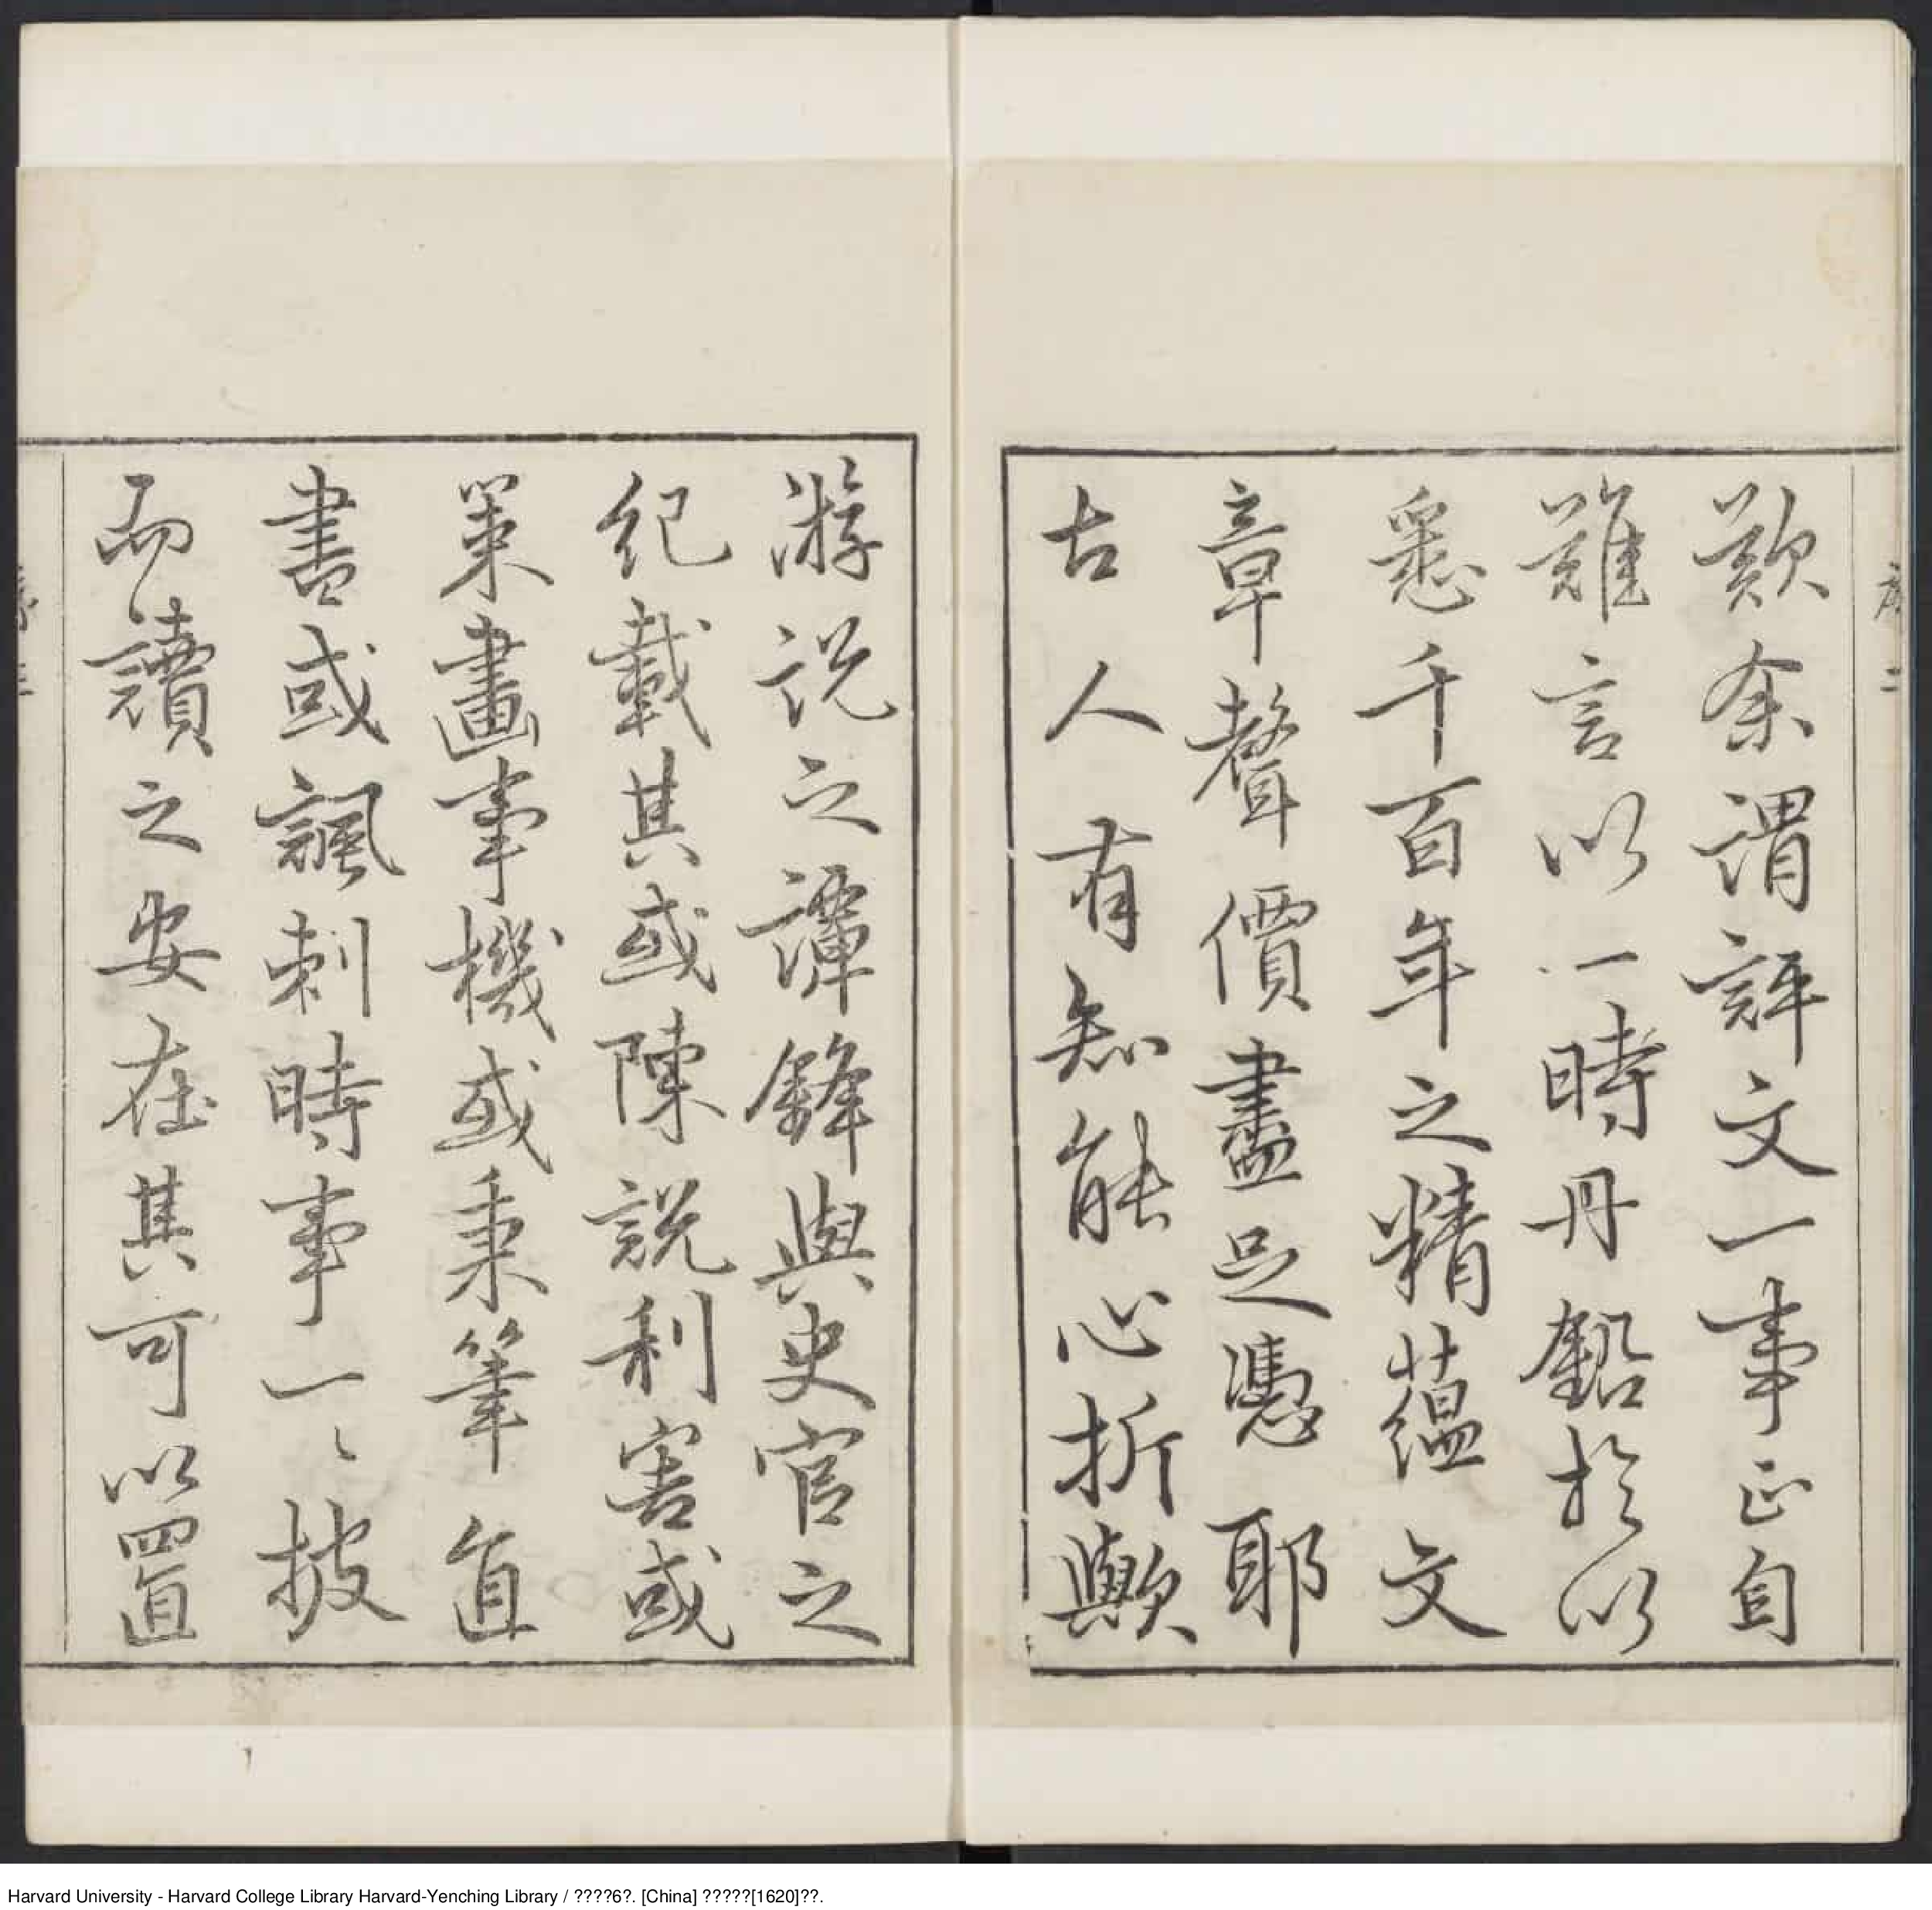 序 二
歎余謂評文一事正自
難言以一時丹鉛於以
悉千百年之精蘊文
章聲價盡足憑耶
古人有知能心折歟
游說之譚鋒與史官之
紀載其或陳說利害或
策畫事機或秉筆直
書或諷刺時事一〻披
而讀之安在其可以置
Harvard University - Harvard College Library Harvard-Yenching Library / ????6?. [China] ?????[1620]??.